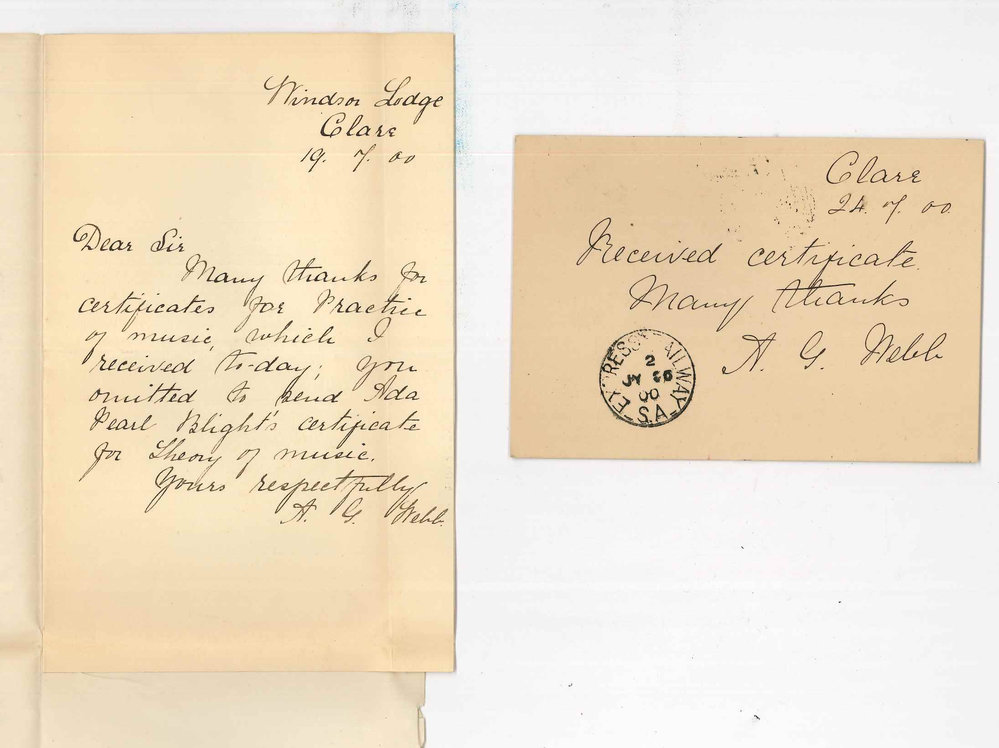 Windsor Lodge
Clare
19. 7. 00
Dear Sir
Many thanks for
certificates for Practice
of music, which I
received to-day; you
omitted to send Ada
Pearl Blight's certificate
for Theory of music.
Yours respectfully
A. G. Webb.
Clare
24. 7. 00.
Received certificate.
Many thanks
A. G. Webb
EXPRESS RAILWAY
2
JY
00
S.A